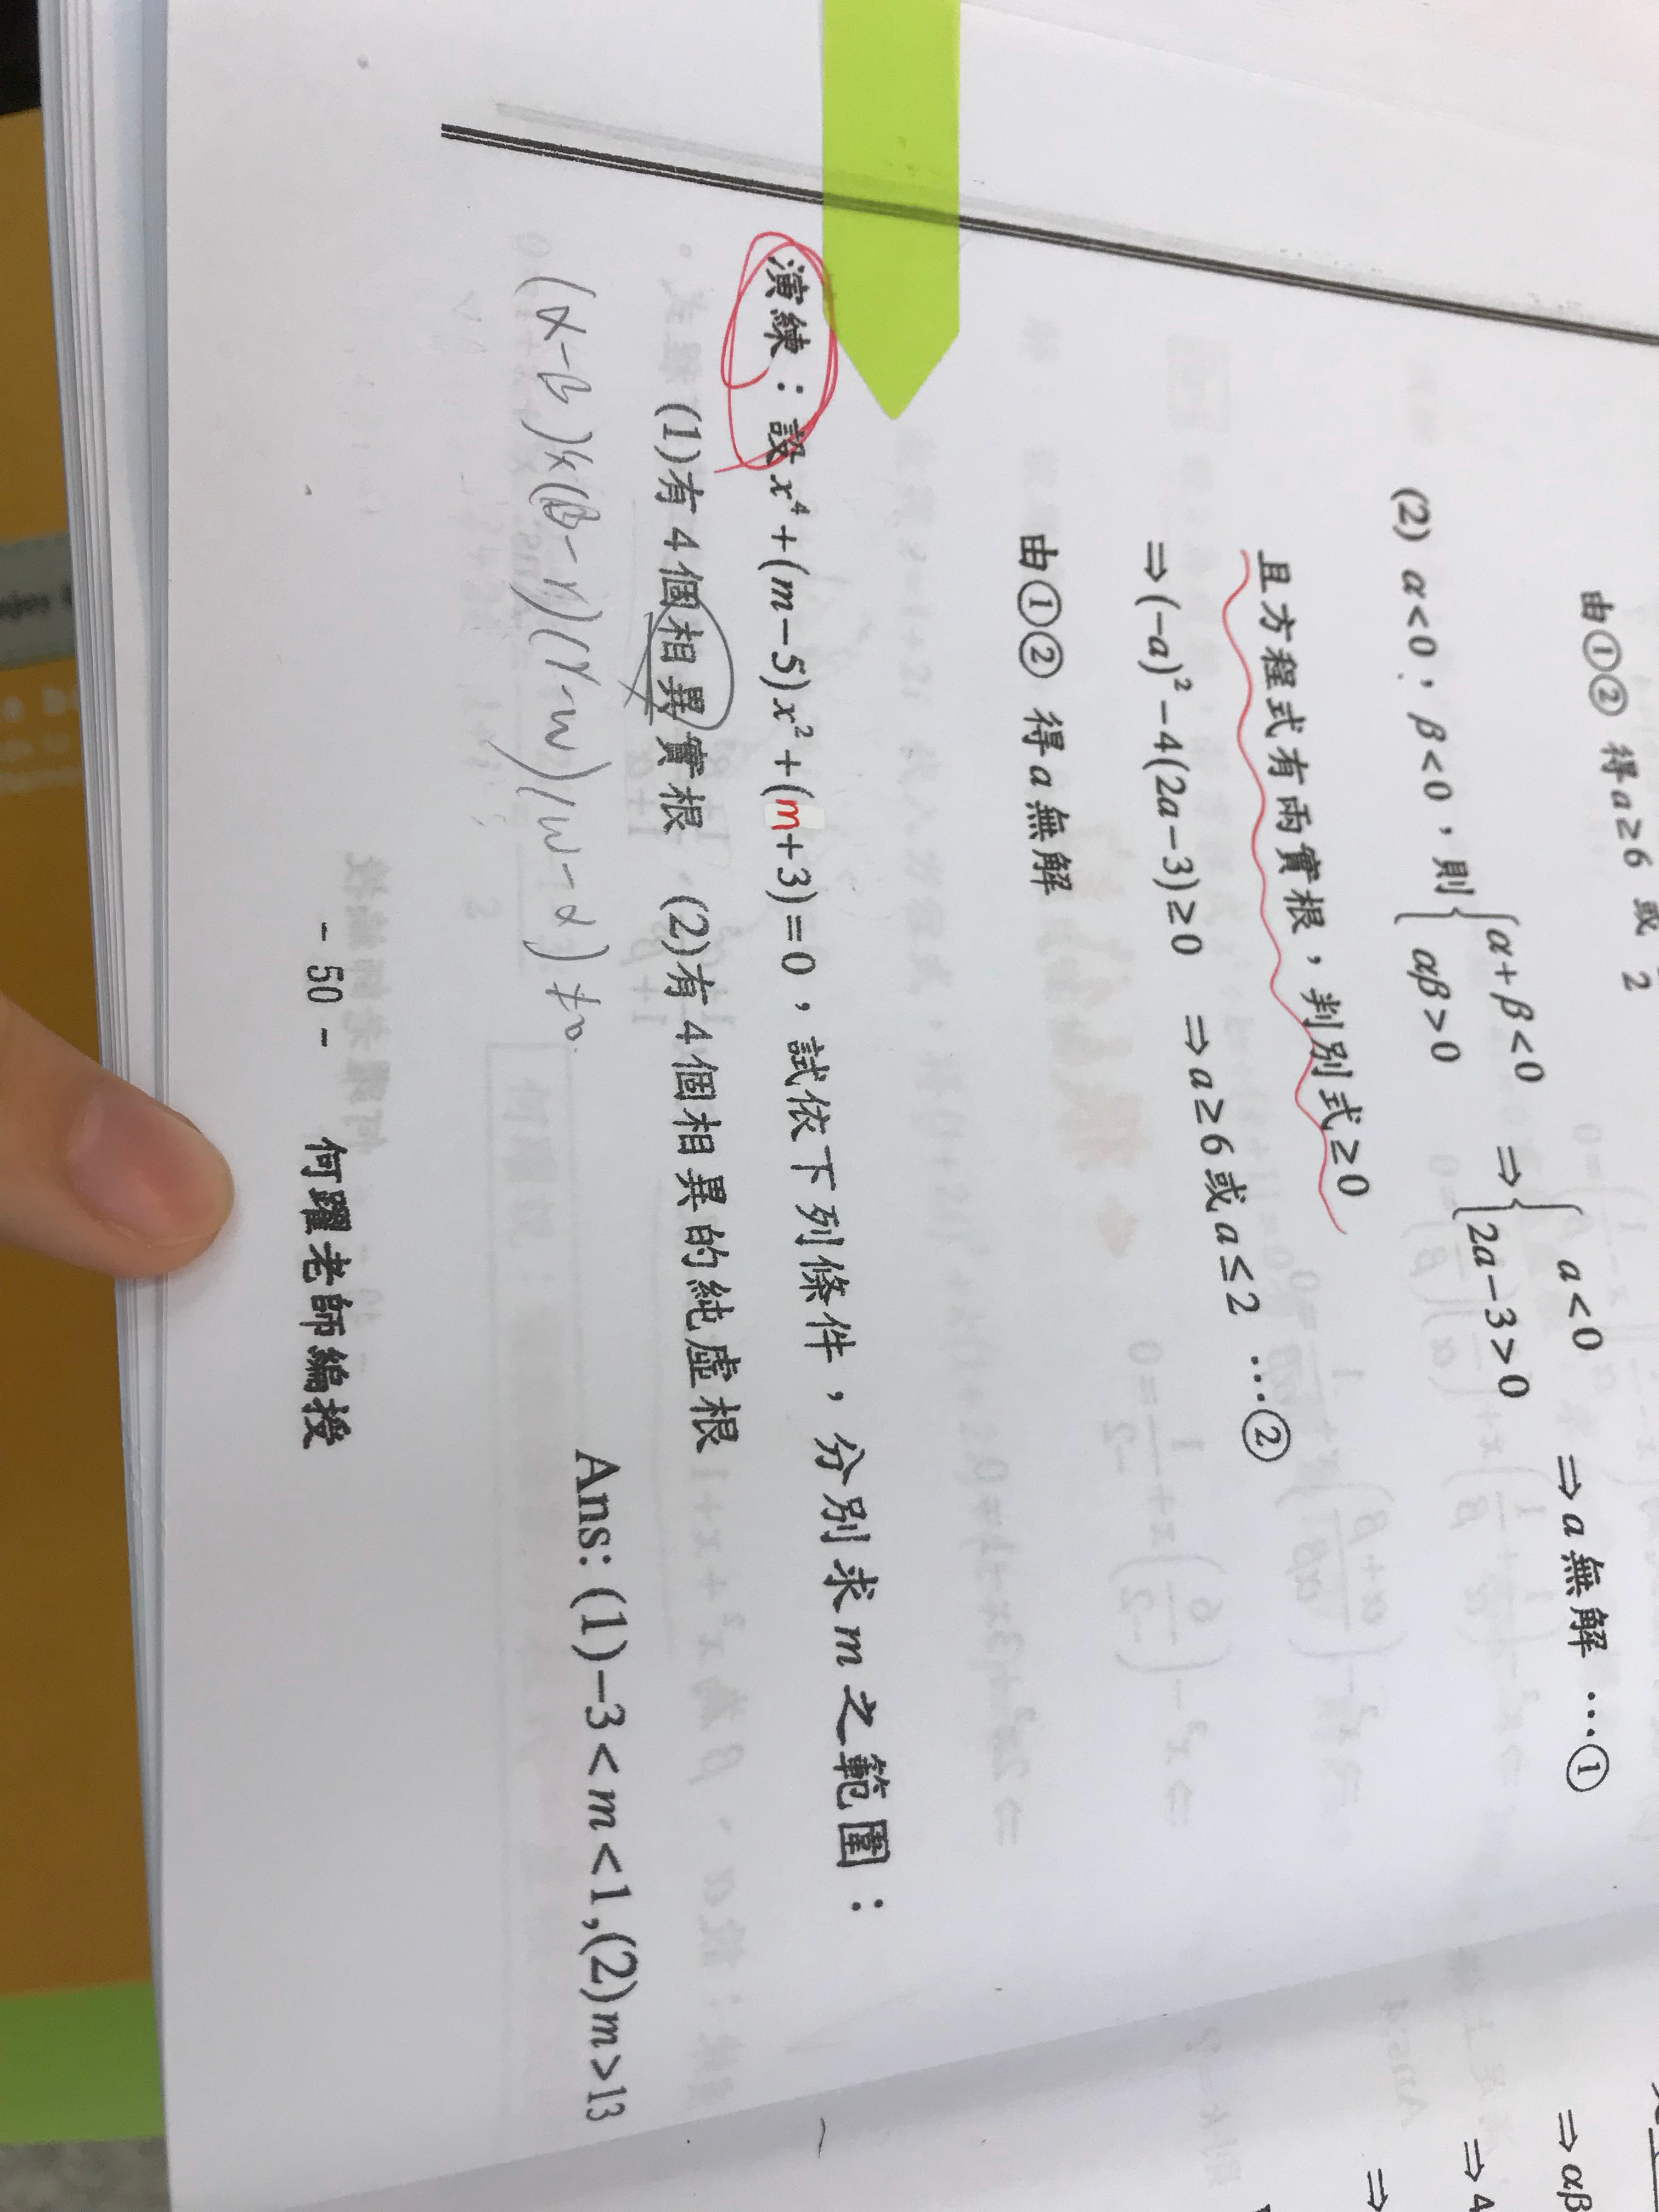 由①② 得a≥6 或 2
(2) α<0，β<0，則{α+β<0 αβ>0 ⇒{a<0 2a−3>0 ⇒a無解 …①
且方程式有兩實根，判別式≥0
⇒(−a)²−4(2a−3)≥0 ⇒a≥6或a≤2 …②
由①② 得a無解
演練：設x⁴+(m−5)x²+(m+3)=0，試依下列條件，分別求m之範圍：
(1)有4個相異實根 (2)有4個相異的純虛根
Ans: (1)−3<m<1,(2)m>13
− 50 − 何躍老師編授